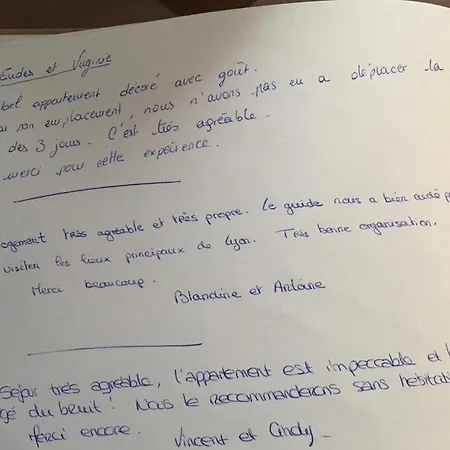 Eudes et Virginie
bel appartement décoré avec goût.
son emplacement, nous n'avons pas eu a déplacer la
des 3 jours. C'est très agréable.
merci pour cette expérience.
logement très agréable et très propre. Le guide nous a bien aidé
visiter les lieux principaux de Lyon. Très bonne organisation.
Merci beaucoup.
Blandine et Antoine
Séjour très agréable, l'appartement est impeccable et
du bruit! Nous le recommanderons sans hésitati
Merci encore.
Vincent et Cindy